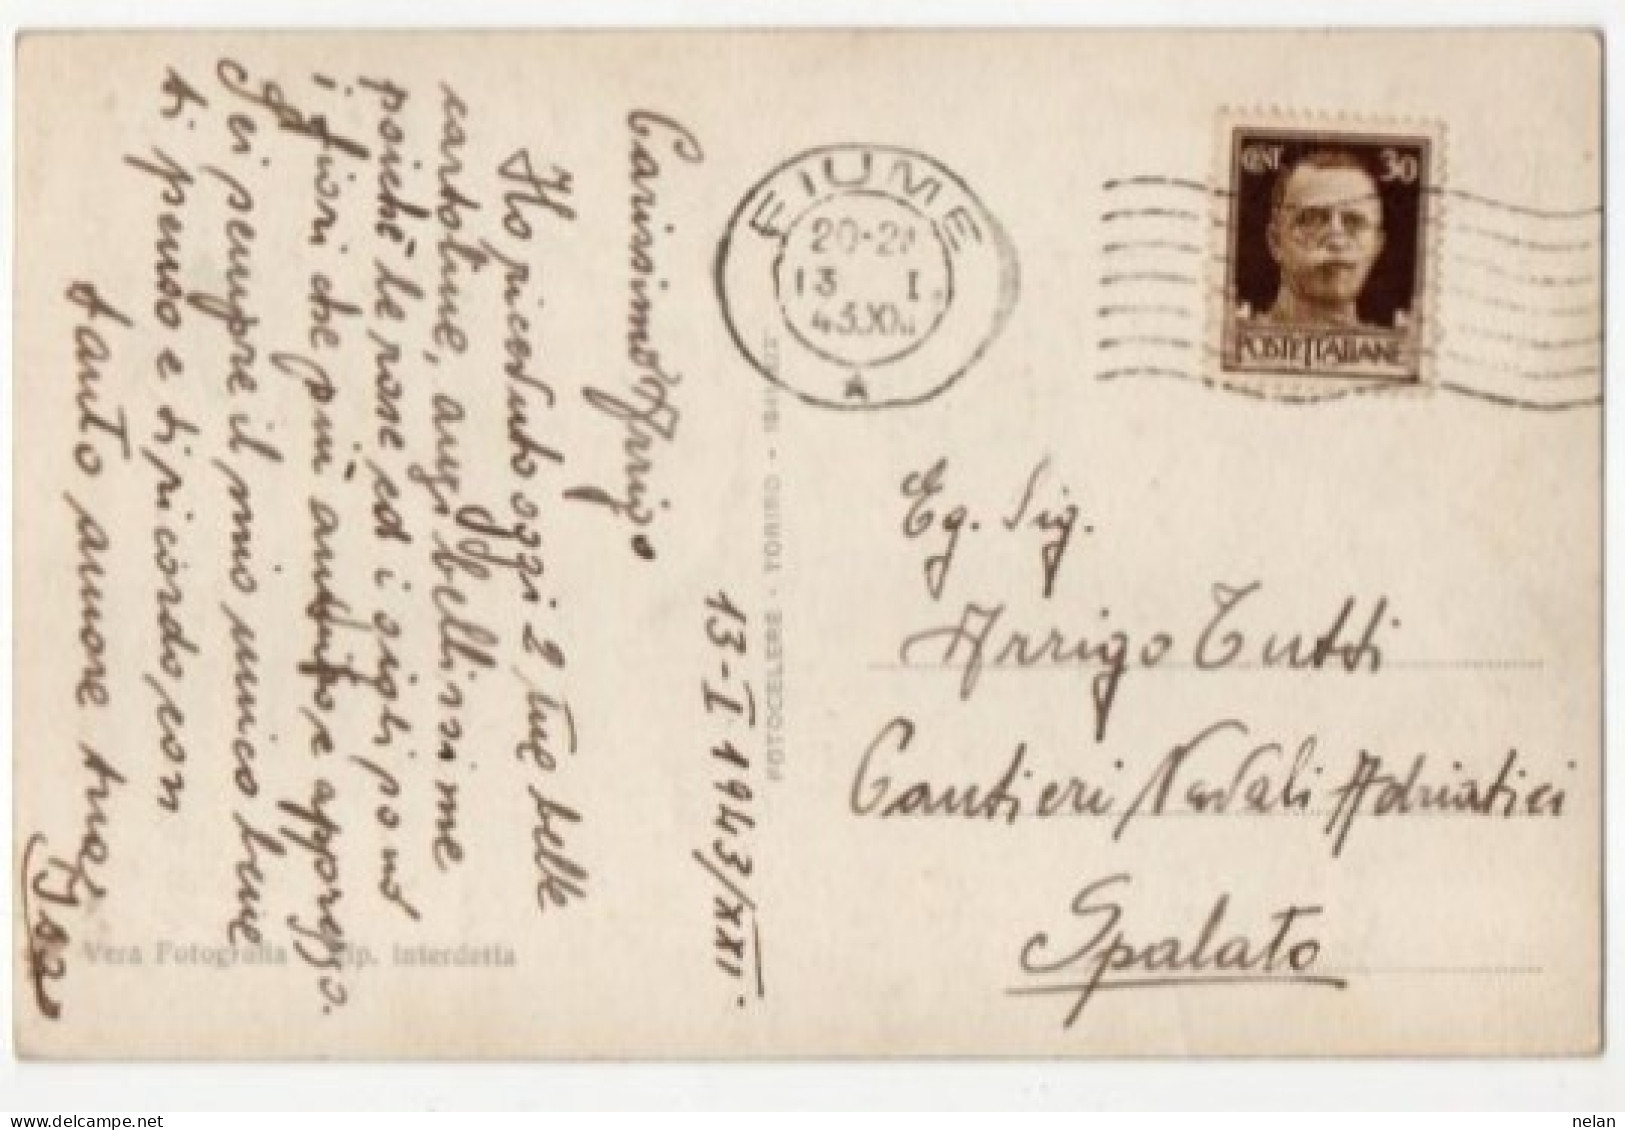 Carissimo Arrigo
Ho ricevuto oggi 2 tue belle
cartoline, anzi bellissime
poiché le rose ed i gigli sono
i fiori che più ammiro e apprezzo.
Sei sempre il mio unico bene
ti penso e ti ricordo, con
tanto amore tua
Isa
13-I 1943/XXI.
FOTOCELERE - TORINO - 194
Vera Fotografia ip. interdetta
FIUME
20-21
13 I
43XXI
A
CENT 30
POSTE ITALIANE
Eg. Sig.
Arrigo Tutti
Cantieri Navali Adriatici
Spalato
nelan